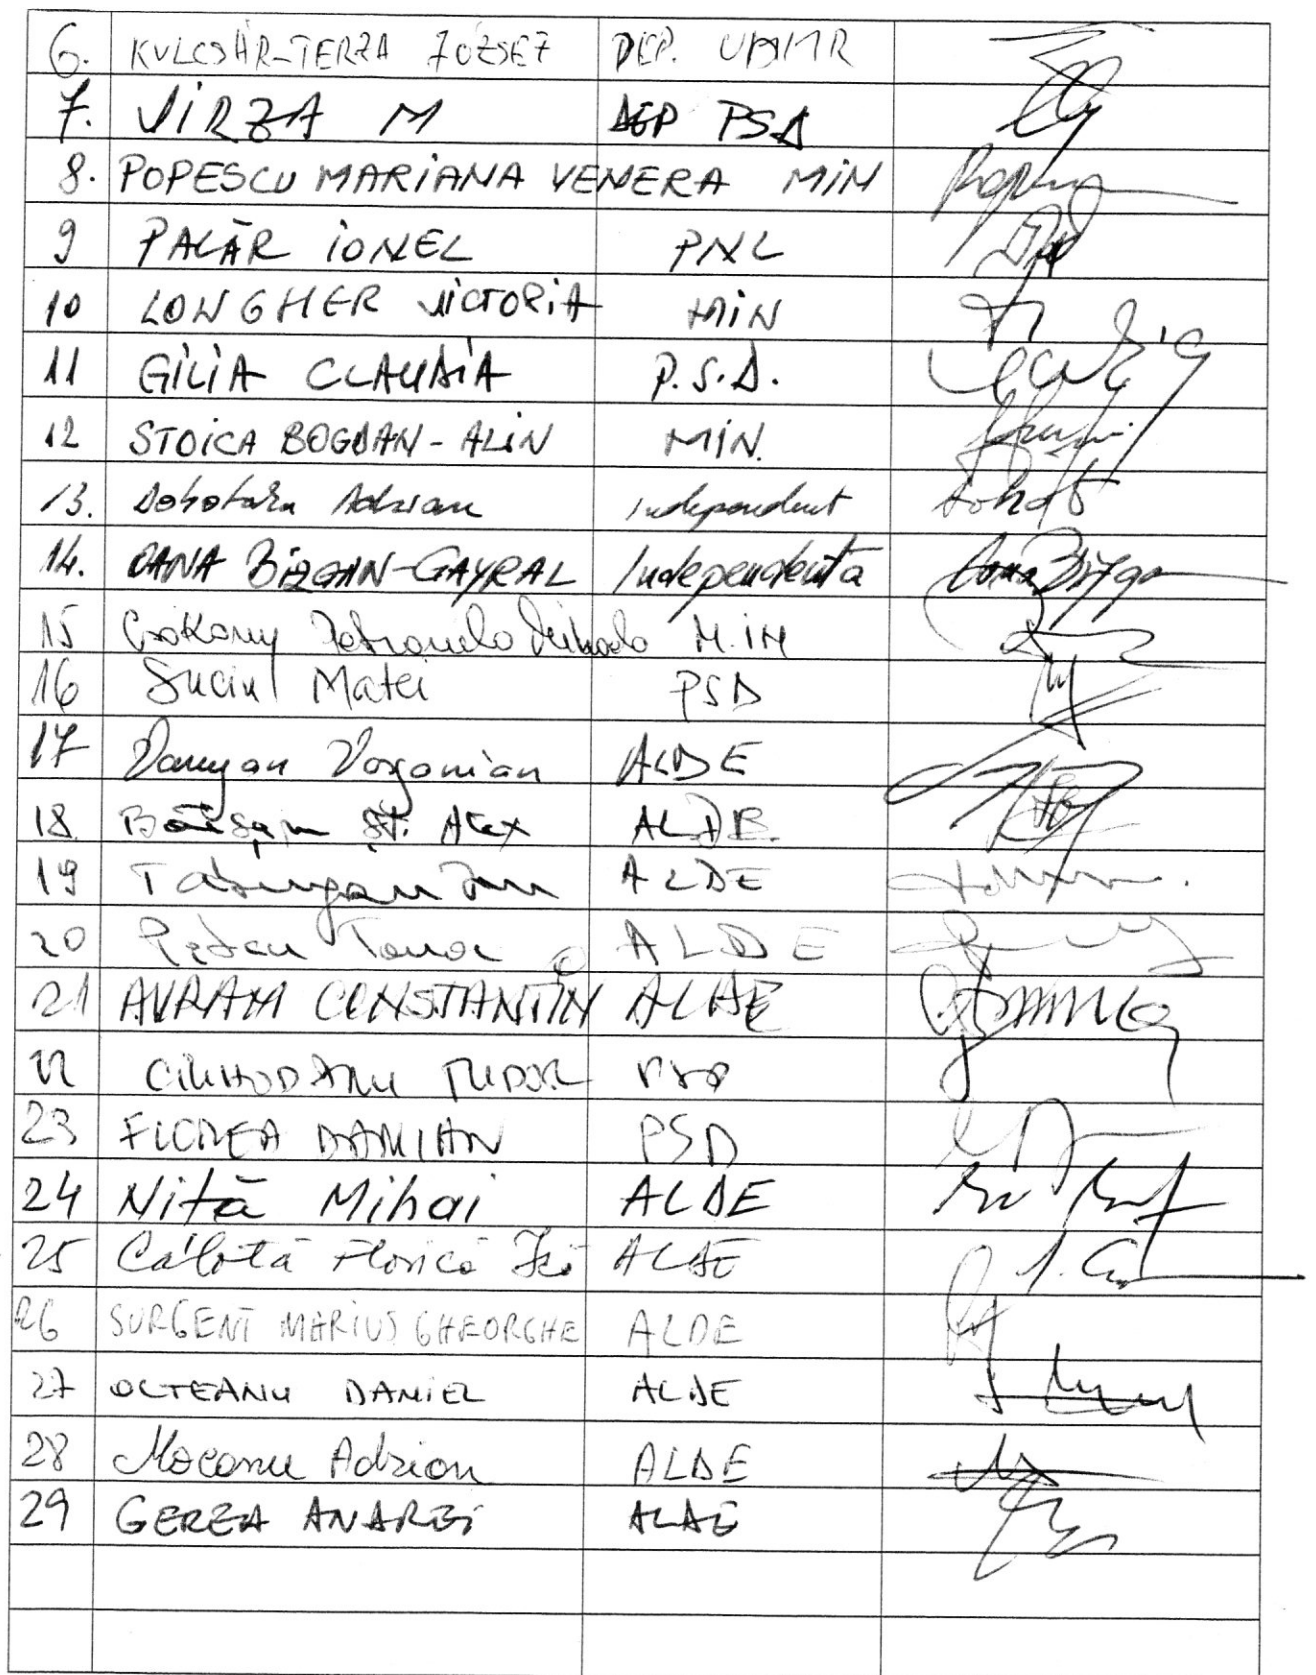 6. KULCSÁR-TERZA JÓZSEF DEP. UDMR
7. VIRZA M DEP PSD
8. POPESCU MARIANA VENERA MIN
9 PALĂR IONEL PNL
10 LONGHER VICTORIA MIN
11 GILIA CLAUDIA P.S.D.
12 STOICA BOGDAN-ALIN MIN.
13. Dohotaru Adrian Independent
14. OANA BÎZGAN-GAYRAL Independentă
15 Csokany Petronela Mihaela MIN
16 Suciu Matei PSD
17 Varujan Vosganian ALDE
18. Băișanu Șt. Alex ALDE
19 ALDE
20 ALDE
21 AVRAM CONSTANTIN ALDE
22 CIUHODARU TUDOR
23 FLOREA DAMIAN PSD
24 Niță Mihai ALDE
25 Calotă Florică ALDE
26 SURGENT MARIUS GHEORGHE ALDE
27 OLTEANU DANIEL ALDE
28 Mocanu Adrian ALDE
29 GEREA ANDREI ALDE